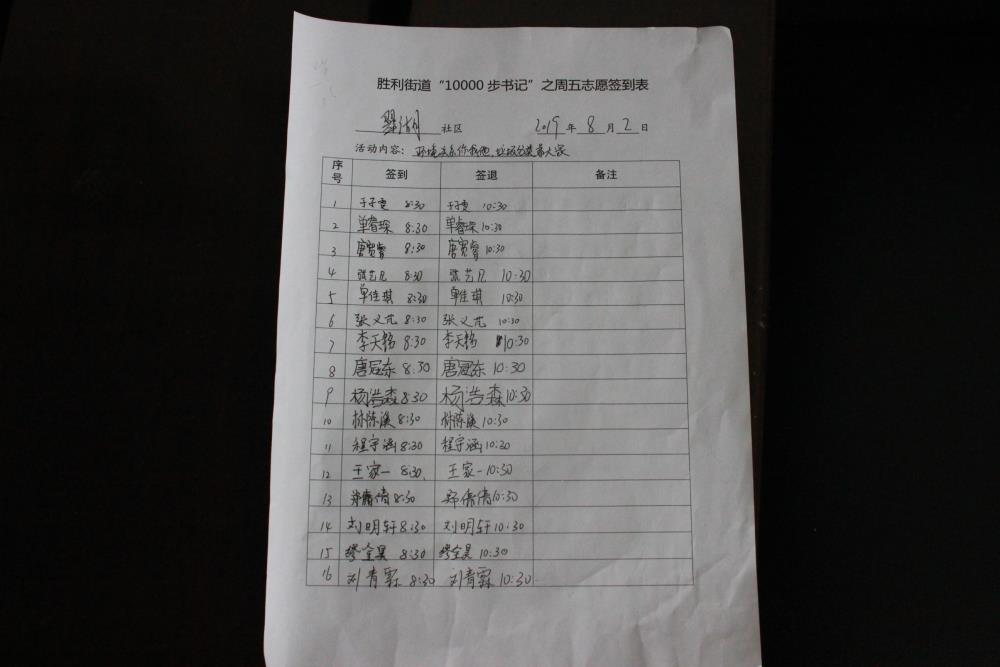 胜利街道“10000 步书记”之周五志愿签到表
翠湖 社区 2019 年 8 月 2 日
活动内容：环境关系你我他，垃圾分类靠大家
序号 签到 签退 备注
1 于子雯 8:30 于子雯 10:30
2 单睿琛 8:30 单睿琛 10:30
3 唐宽睿 8:30 唐宽睿 10:30
4 张艺凡 8:30 张艺凡 10:30
5 单佳琪 8:30 单佳琪 10:30
6 张义芃 8:30 张义芃 10:30
7 李天铭 8:30 李天铭 10:30
8 唐冠东 8:30 唐冠东 10:30
9 杨浩森 8:30 杨浩森 10:30
10 林陈溪 8:30 林陈溪 10:30
11 程守涵 8:30 程守涵 10:30
12 王家一 8:30 王家一 10:30
13 8:30 10:30
14 刘明轩 8:30 刘明轩 10:30
15 缪全昊 8:30 缪全昊 10:30
16 刘青霖 8:30 刘青霖 10:30